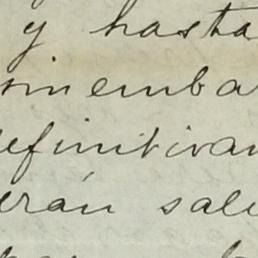 y hasta
sin emba
efinitivam
erán sali